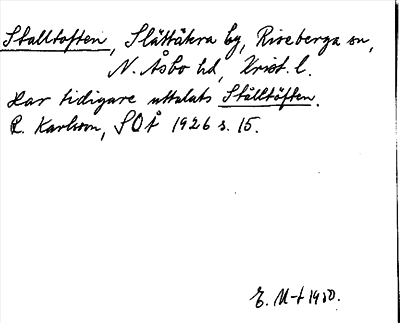 Stalltoften, Slättåkra by, Riseberga sn,
N. Åsbo hd, Krist. l.
Har tidigare uttalats Ställtöften.
R. Karlsson, SOÅ 1926 s. 15.
E. M-t 1930.